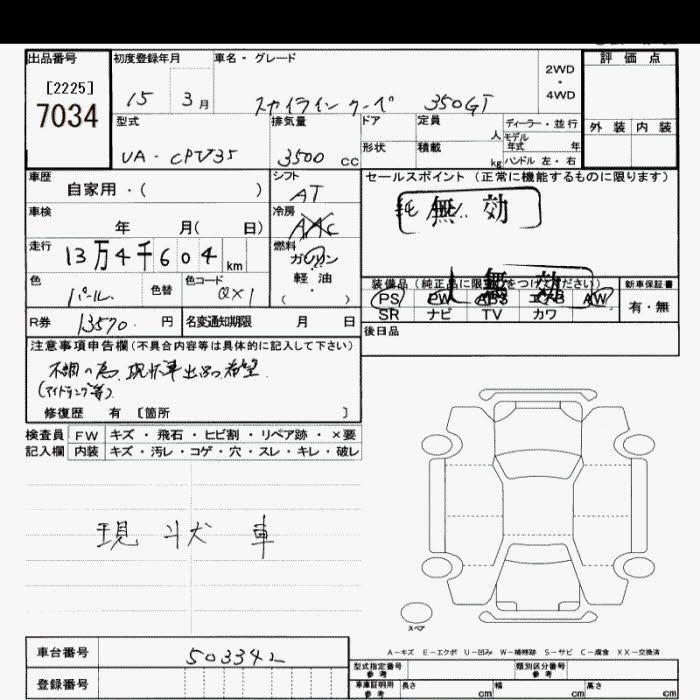 出品番号 初度登録年月 車名・グレード 評価点
[2225] 2WD・4WD
7034 15 3月 スカイラインクーペ 350GT
型式 排気量 ドア 定員 人 ディーラー・並行 外装 内装
UA-CPV35 3500 cc 形状 積載 kg モデル年式 年 ハンドル 左・右
車歴 自家用・( ) シフト AT セールスポイント (正常に機能するものに限ります)
車検 年 月( 日) 冷房 AAC 無効
走行 13万4千604km 燃料 ガソリン・軽油・( )
装備品(純正品に限り○をつけてください) 新車保証書
無効
色 パール 色替 色コード QX1 PS PW ABS エアB AW 有・無
SR ナビ TV カワ
R券 13570円 名変通知期限 月 日 後日品
注意事項申告欄(不具合内容等は具体的に記入して下さい)
不調の為、現状車出品希望
(アイドリング等)
修復歴 有 [箇所 ]
検査員 FW キズ・飛石・ヒビ割・リペア跡・×要
記入欄 内装 キズ・汚レ・コゲ・穴・スレ・キレ・破レ
現状車
スペア
車台番号 503342 A−キズ E−エクボ U−凹み W−補修跡 S−サビ C−腐食 XX−交換済
型式指定番号 参考 類別区分番号 参考
登録番号 車庫証明用 参考 長さ cm 幅 cm 高さ cm